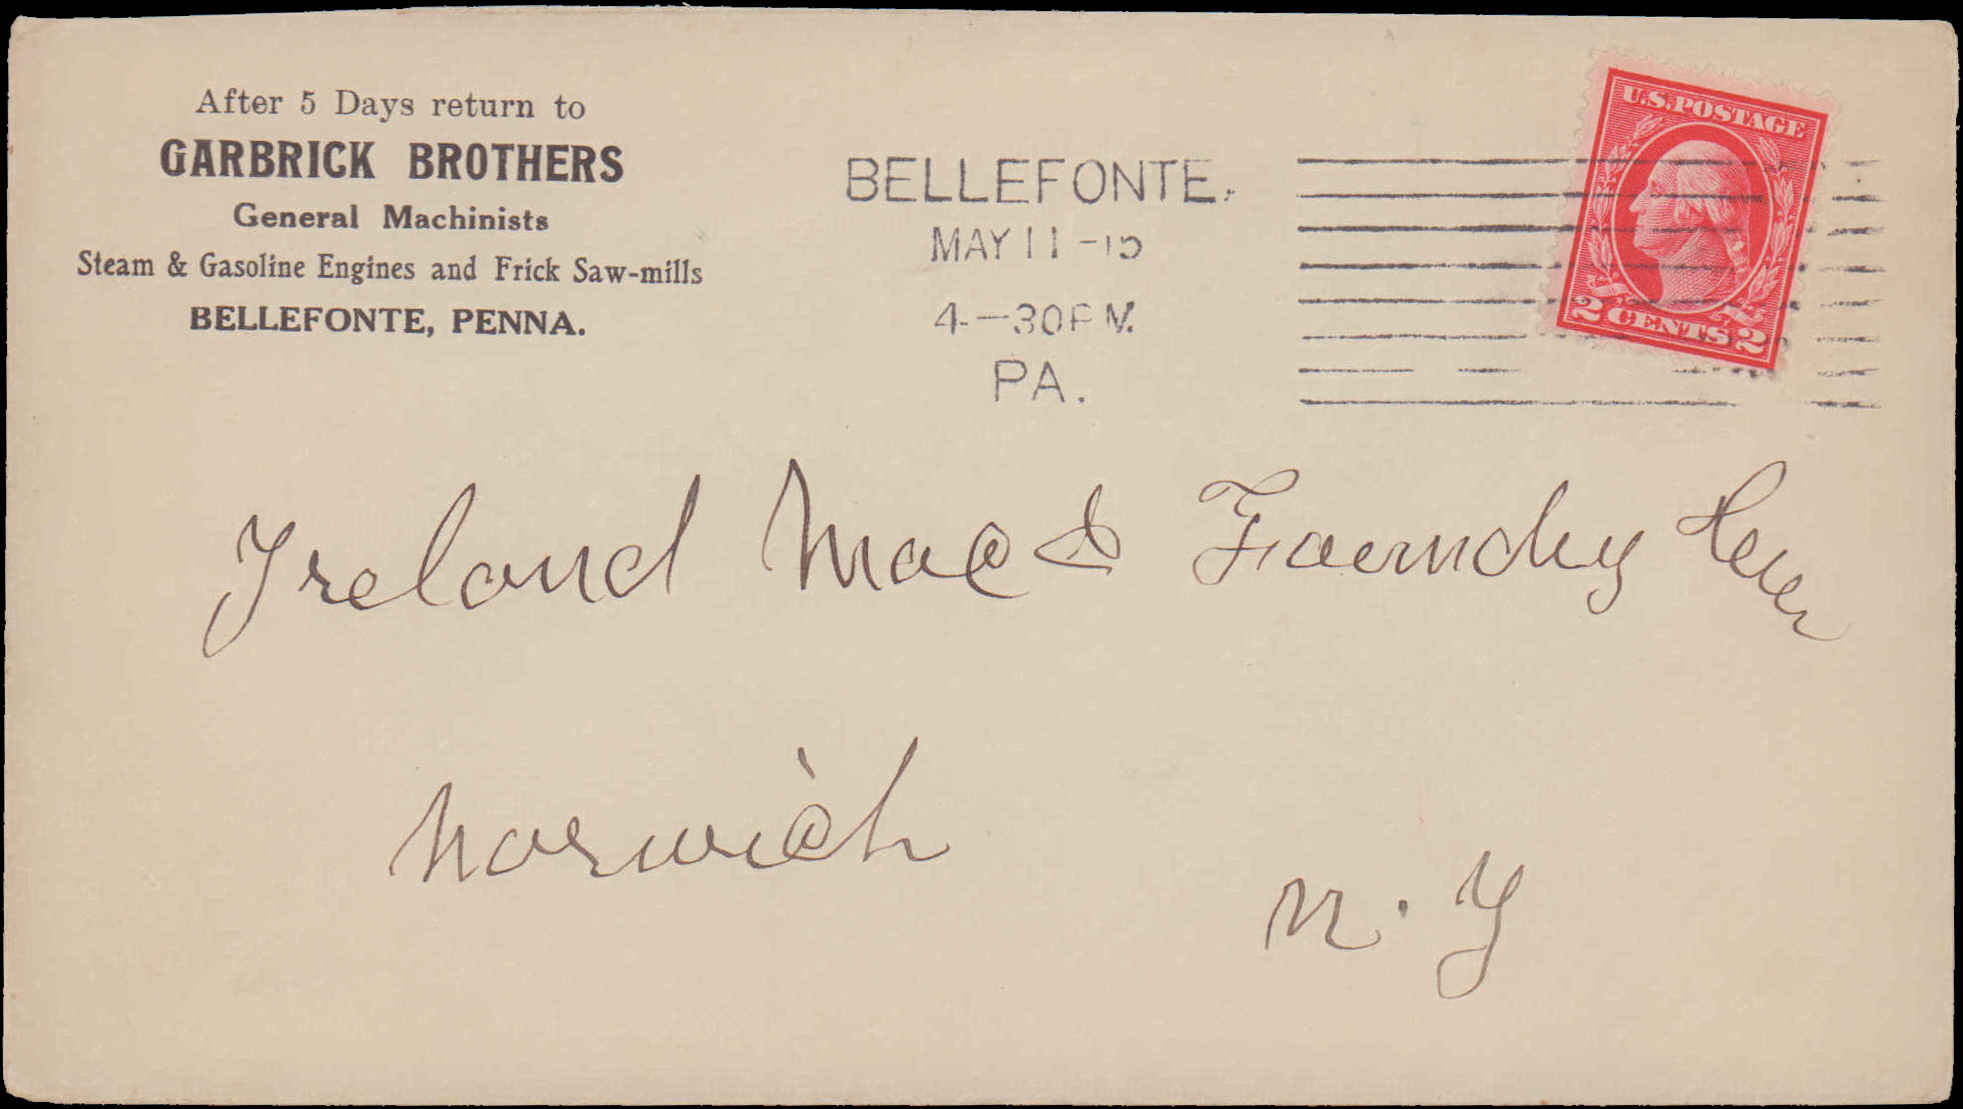 After 5 Days return to
GARBRICK BROTHERS
General Machinists
Steam & Gasoline Engines and Frick Saw-mills
BELLEFONTE, PENNA.
BELLEFONTE.
MAY 11 -15
4-30 P M.
PA.
U.S. POSTAGE
2 CENTS 2
Ireland Mac &
Norwich
N. Y